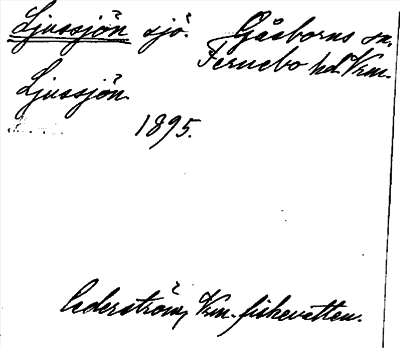 Ljussjön sjö. Gåsborns sn.
Fernebo hd. Vrm.
Ljussjön
1895.
Cederström, Vrm. fiskevatten.